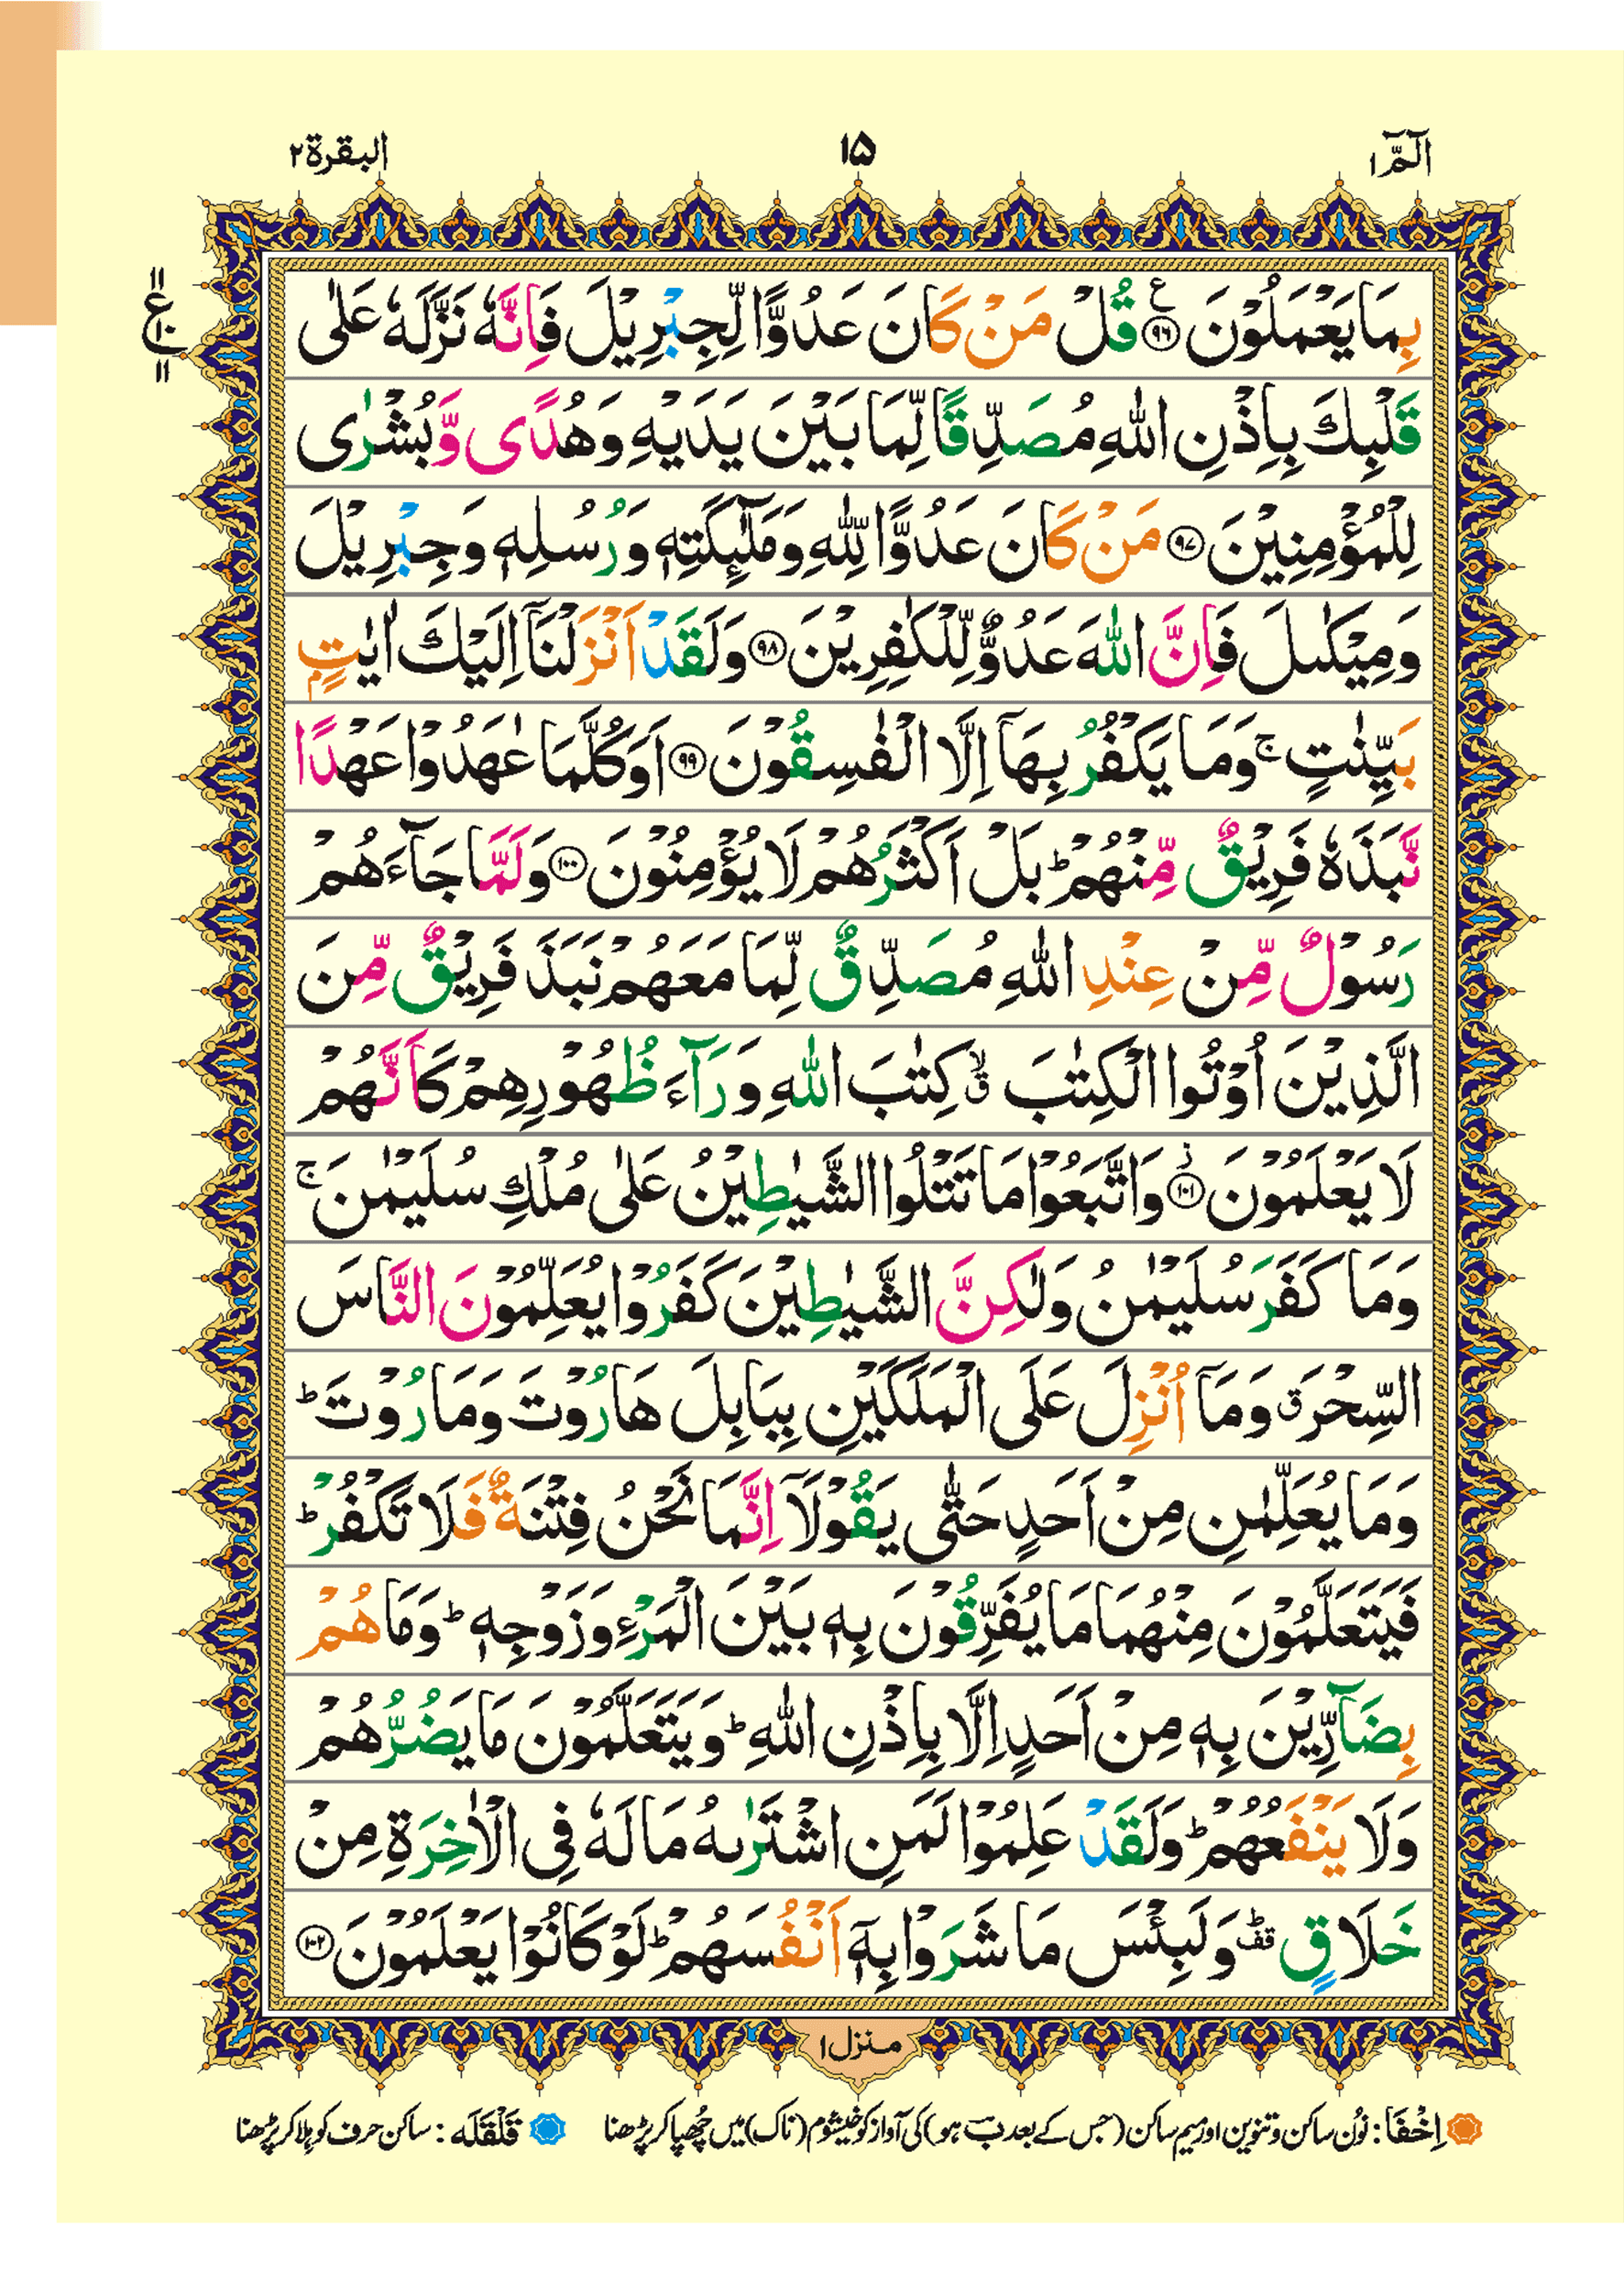 الٓمّٓ ۱
۱۵
البقرة ۲
بِمَا يَعْمَلُوْنَ ۟ع ۹۶ قُلْ مَنْ كَانَ عَدُوًّا لِّجِبْرِيْلَ فَاِنَّهٗ نَزَّلَهٗ عَلٰى
قَلْبِكَ بِاِذْنِ اللّٰهِ مُصَدِّقًا لِّمَا بَيْنَ يَدَيْهِ وَهُدًى وَّبُشْرٰى
لِلْمُؤْمِنِيْنَ ۹۷ مَنْ كَانَ عَدُوًّا لِّلّٰهِ وَمَلٰٓئِكَتِهٖ وَرُسُلِهٖ وَجِبْرِيْلَ
وَمِيْكٰىلَ فَاِنَّ اللّٰهَ عَدُوٌّ لِّلْكٰفِرِيْنَ ۹۸ وَلَقَدْ اَنْزَلْنَآ اِلَيْكَ اٰيٰتٍۭ
بَيِّنٰتٍ ۚ وَمَا يَكْفُرُ بِهَآ اِلَّا الْفٰسِقُوْنَ ۹۹ اَوَكُلَّمَا عٰهَدُوْا عَهْدًا
نَّبَذَهٗ فَرِيْقٌ مِّنْهُمْ ؕ بَلْ اَكْثَرُهُمْ لَا يُؤْمِنُوْنَ ۱۰۰ وَلَمَّا جَآءَهُمْ
رَسُوْلٌ مِّنْ عِنْدِ اللّٰهِ مُصَدِّقٌ لِّمَا مَعَهُمْ نَبَذَ فَرِيْقٌ مِّنَ
الَّذِيْنَ اُوْتُوا الْكِتٰبَ ۙق كِتٰبَ اللّٰهِ وَرَآءَ ظُهُوْرِهِمْ كَاَنَّهُمْ
لَا يَعْلَمُوْنَ ز ۱۰۱ وَاتَّبَعُوْا مَا تَتْلُوا الشَّيٰطِيْنُ عَلٰى مُلْكِ سُلَيْمٰنَ ۚ
وَمَا كَفَرَ سُلَيْمٰنُ وَلٰكِنَّ الشَّيٰطِيْنَ كَفَرُوْا يُعَلِّمُوْنَ النَّاسَ
السِّحْرَ ق وَمَآ اُنْزِلَ عَلَى الْمَلَكَيْنِ بِبَابِلَ هَارُوْتَ وَمَارُوْتَ ؕ
وَمَا يُعَلِّمٰنِ مِنْ اَحَدٍ حَتّٰى يَقُوْلَآ اِنَّمَا نَحْنُ فِتْنَةٌ فَلَا تَكْفُرْ ؕ
فَيَتَعَلَّمُوْنَ مِنْهُمَا مَا يُفَرِّقُوْنَ بِهٖ بَيْنَ الْمَرْءِ وَزَوْجِهٖ ؕ وَمَا هُمْ
بِضَآرِّيْنَ بِهٖ مِنْ اَحَدٍ اِلَّا بِاِذْنِ اللّٰهِ ؕ وَيَتَعَلَّمُوْنَ مَا يَضُرُّهُمْ
وَلَا يَنْفَعُهُمْ ؕ وَلَقَدْ عَلِمُوْا لَمَنِ اشْتَرٰىهُ مَا لَهٗ فِى الْاٰخِرَةِ مِنْ
خَلَاقٍ ؕقف وَلَبِئْسَ مَا شَرَوْا بِهٖٓ اَنْفُسَهُمْ ؕ لَوْ كَانُوْا يَعْلَمُوْنَ ۱۰۲
۱۱
ع
۱۰
۱۱
منزل ۱
اِخْفَا: نُون ساکن و تنوین اور میم ساکن (جس کے بعد بَ ہو) کی آواز کو خیشوم (ناک) میں چُھپا کر پڑھنا قَلْقَلَه: ساکن حرف کو ہِلا کر پڑھنا